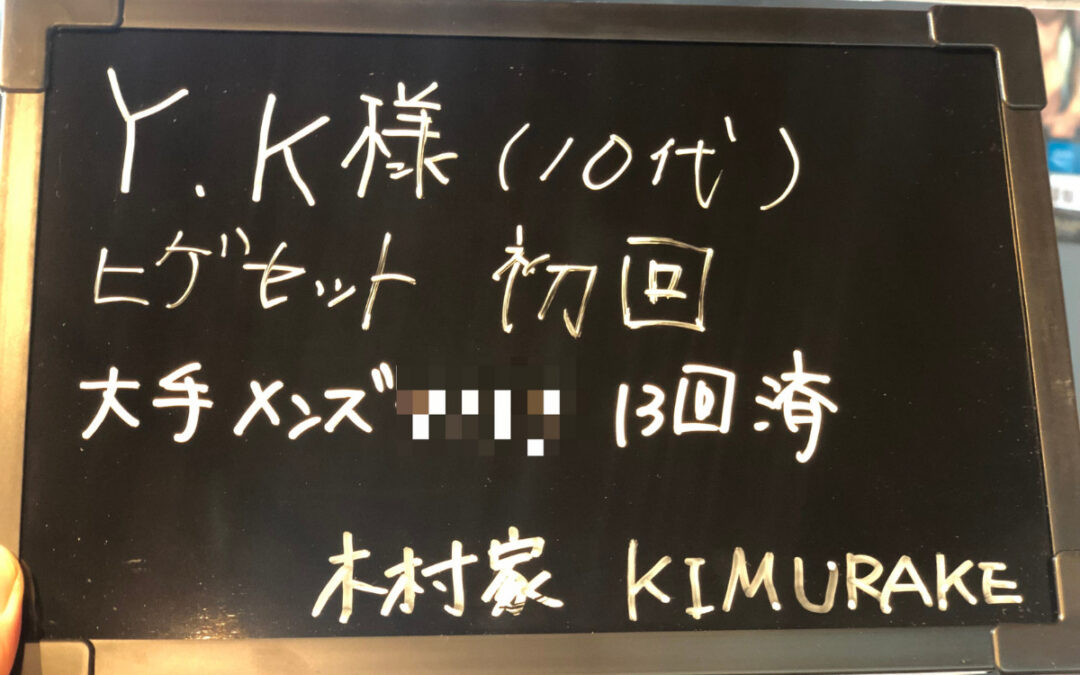 Y.K様（10代）
ヒゲセット 初回
大手メンズ 13回済
木村家 KIMURAKE